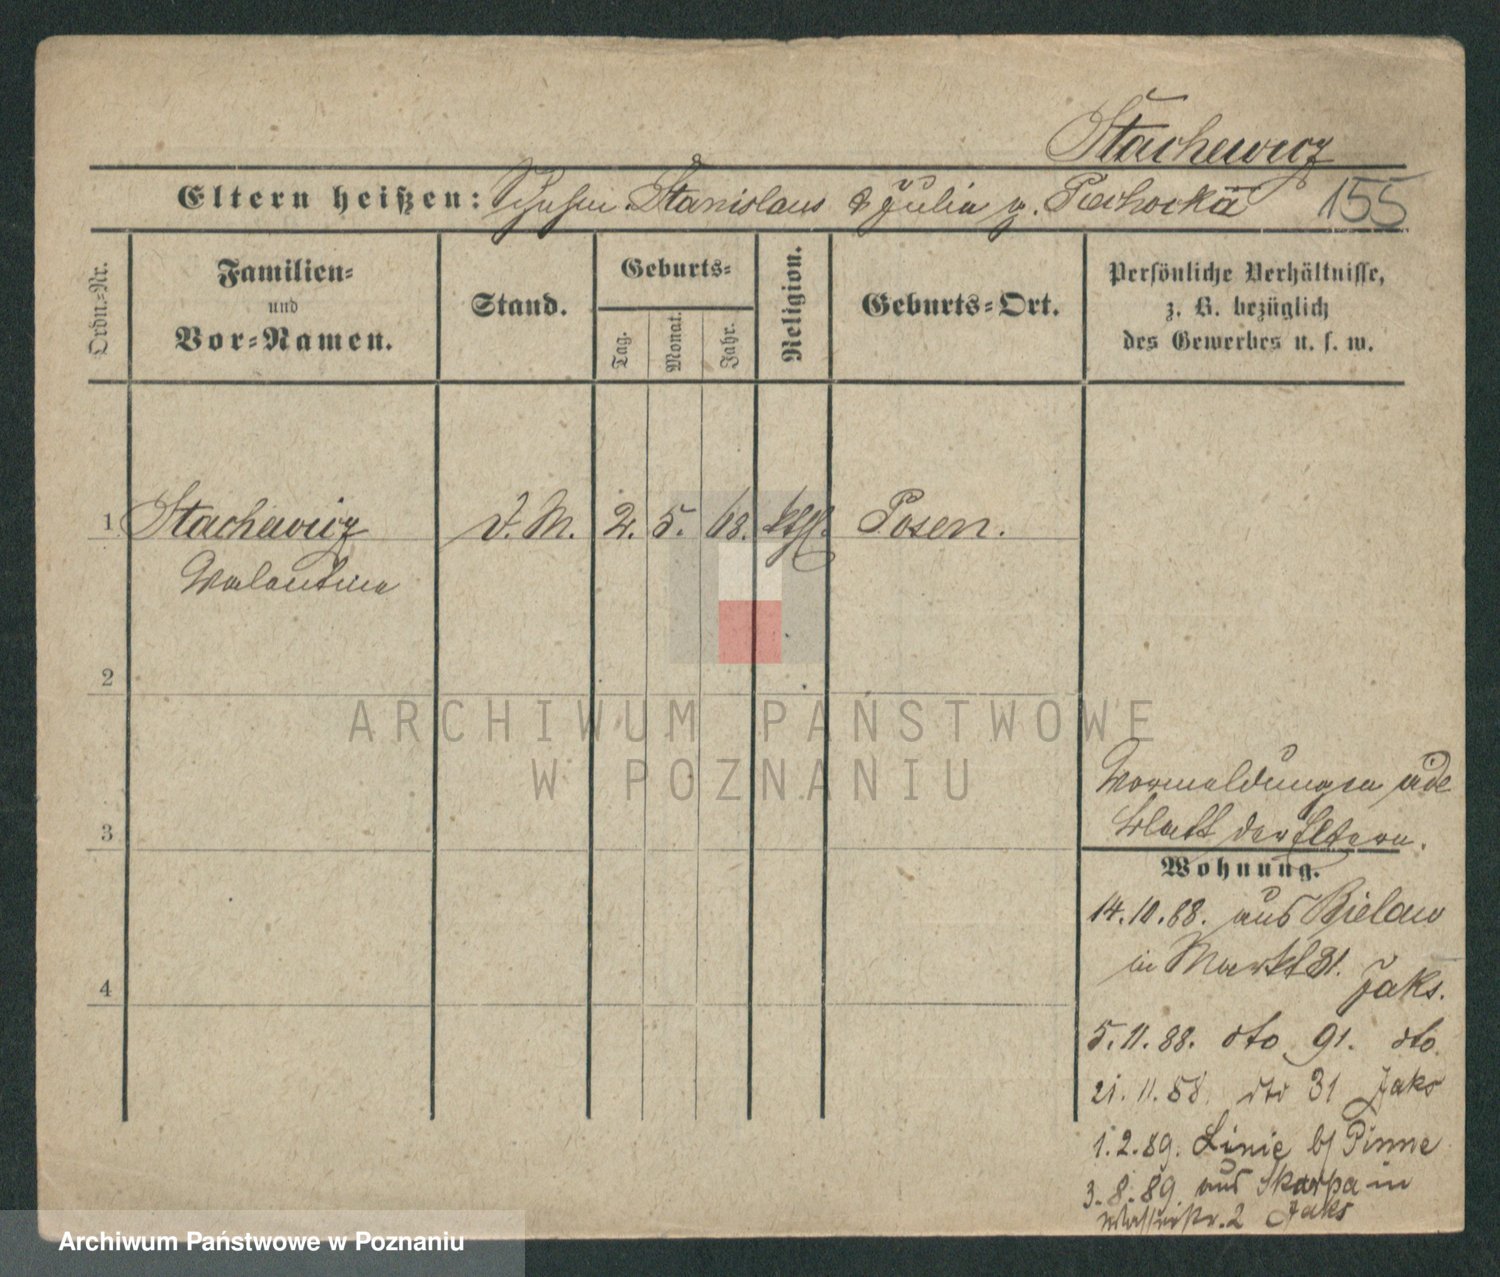 Stachewicz
Eltern heißen: Stanislaus & Julia g. Piechocka 155
Ordn.-Nr.
Familien-
und
Vor-Namen.
Stand.
Geburts-
Tag.
Monat.
Jahr.
Religion.
Geburts-Ort.
Persönliche Verhältnisse,
z. B. bezüglich
des Gewerbes u. s. w.
1 Stachewicz D. M. 2. 5. 68. kth. Posen.
Valentina
2
ARCHIWUM PAŃSTWOWE
W POZNANIU
Vormeldungen vide
blatt der Eltern.
3
Wohnung.
14.10.88. aus Bielawo
in Markt 81.
Jaks.
4
5.11.88. dto 91. dto.
21.11.88. dto 31 Jaks
1.2.89. Linie b/ Pinne
3.8.89 aus Skarpa in
2 Jaks
Archiwum Państwowe w Poznaniu